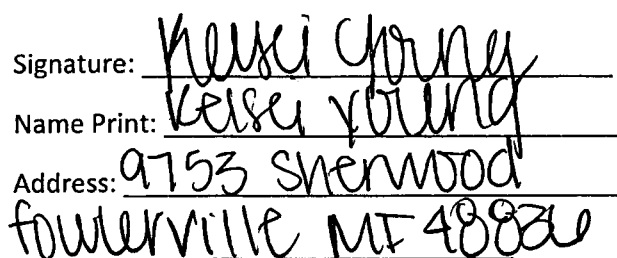 Signature: Keisei Young
Name Print: Keisei Young
Address: 9753 Sherwood
Fowlerville MI 48836